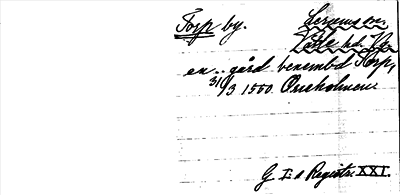 Torp by. Lerums sn.
Vättle hd. Vg.
en .. gård benembd Torp,
31/3 1550. Öreholmen
G I:s Registr. XXI.